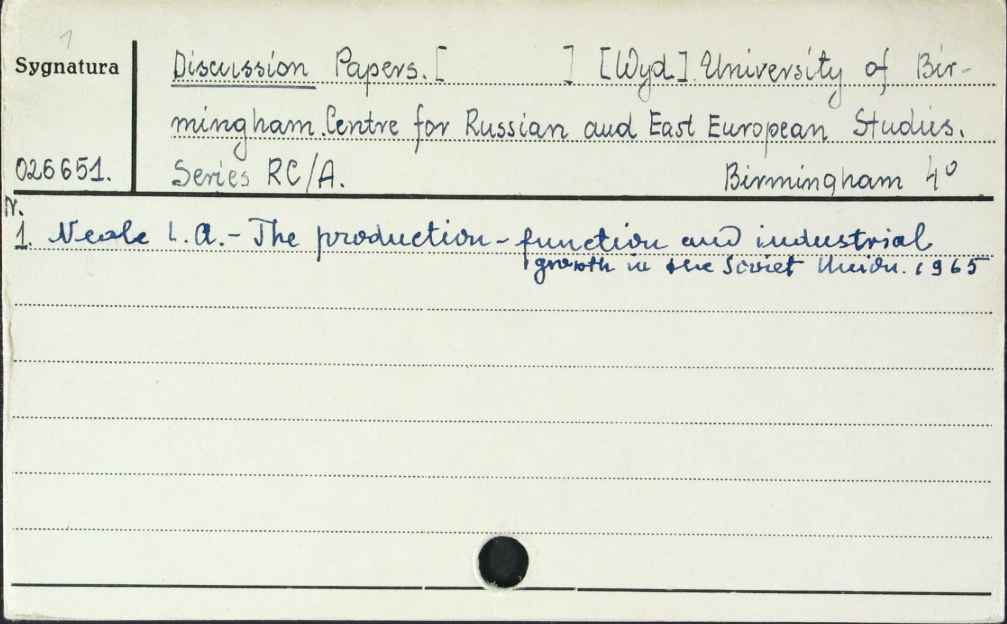 1
Sygnatura
Discussion Papers. [ ] [Wyd.] University of Bir-
mingham. Centre for Russian and East European Studies.
026651.
Series RC/A. Birmingham 4°
Nr.
1. Neale L.A. - The production - function and industrial
growth in the Soviet Union. 1965